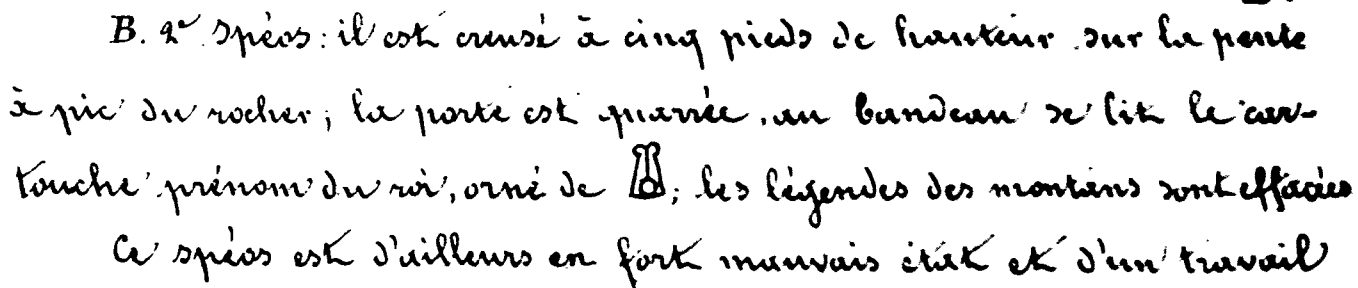 B. 2e Spéos: il est creusé à cinq pieds de hauteur sur la pente
à pic du rocher; la porte est quarrée, au bandeau se lit le car-
touche prénom du roi, orné de ; les légendes des montans sont effacées
Ce spéos est d'ailleurs en fort mauvais état et d'un travail